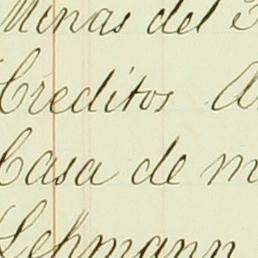 Minas del
Creditos
Casa de
Lehmann